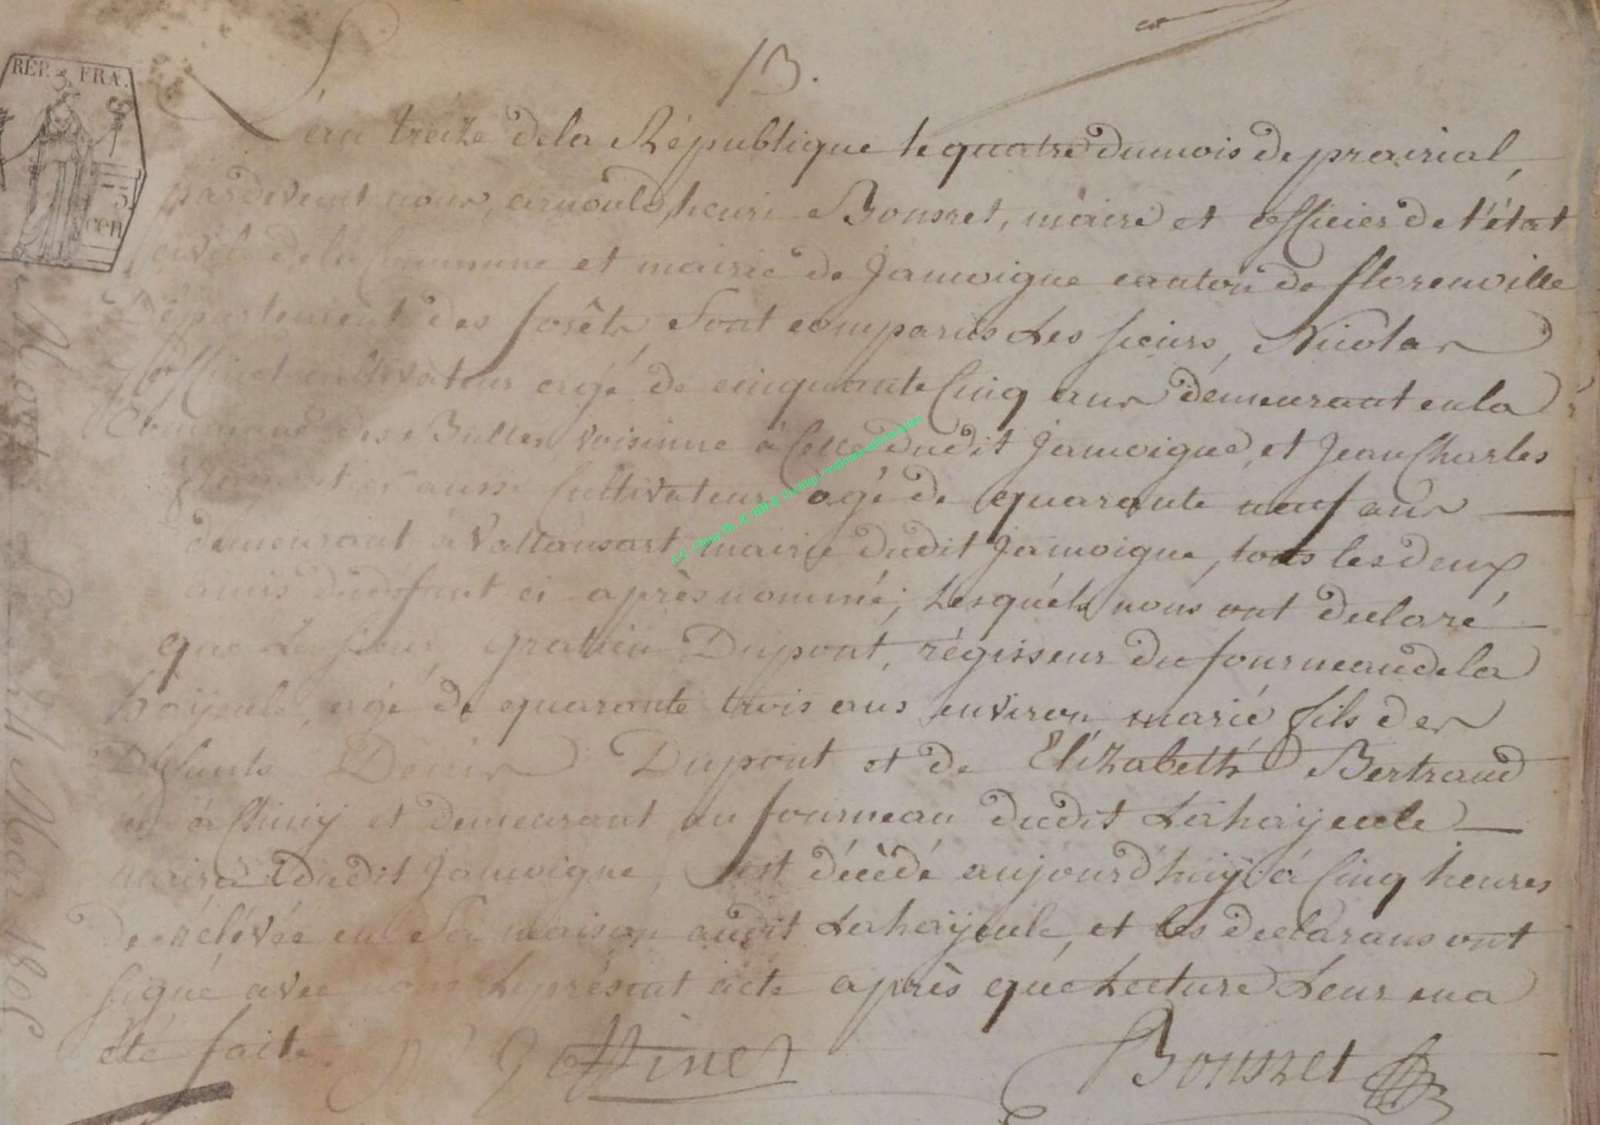 13.
REP. FRA.
L'an treize de la République le quatre du mois de prairial,
pardevant nous, arnould, henri Bonsret, maire et officier de l'état
civil de la Commune et mairie de Jamoigne canton de florenville
Département des forêts, Sont comparus Les sieurs, Nicolas
Goffinet cultivateur agé de cinquante Cinq ans demeurant en la
Commune des Bulles voisinne à Celle dudit Jamoigne, et Jean Charles
aussi Cultivateur agé de quarante neuf ans
demeurant à Vallansart, mairie dudit Jamoigne, tous les deux
amis du défunt ci après nommé; Lesquéls nous ont declaré
que Le sieur, gratien Dupont, régisseur du fourneau de la
hayeule, agé de quarante trois ans environ marié fils des
Défunts Denis Dupont et de Elizabethe Bertrand
né à Chiny et demeurant au fourneau dudit Lahayeule
mairie dudit Jamoigne, est décèdé aujourd'huÿ à Cinq heures
de rélévée en Sa maison audit Lahayeule, et les declarans ont
signé avec nous Le présent acte après qué Lecture Leur en a
été faite.
N Goffinet Bonsret